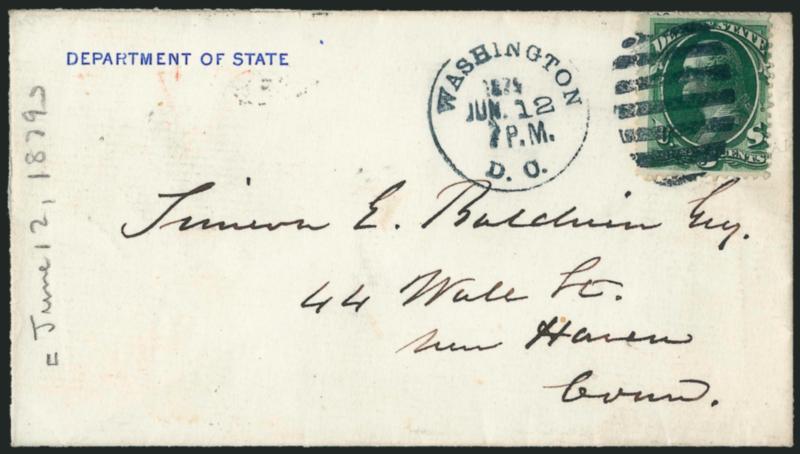 DEPARTMENT OF STATE
WASHINGTON
1879
JUN. 12
7 P.M.
D. C.
Simeon E. Baldwin Esq.
44 Wall St.
New Haven
Conn.
= June 12, 1879